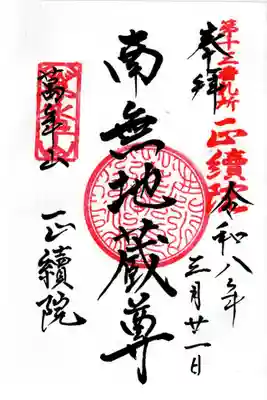 第十三番札所 正續院
奉拝
令和八年
三月廿一日
南無地蔵尊
萬年山
正續院